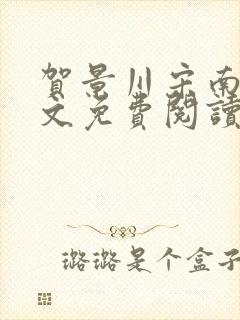 賀景川宋南
文免費閱讀
璐璐是个盒子